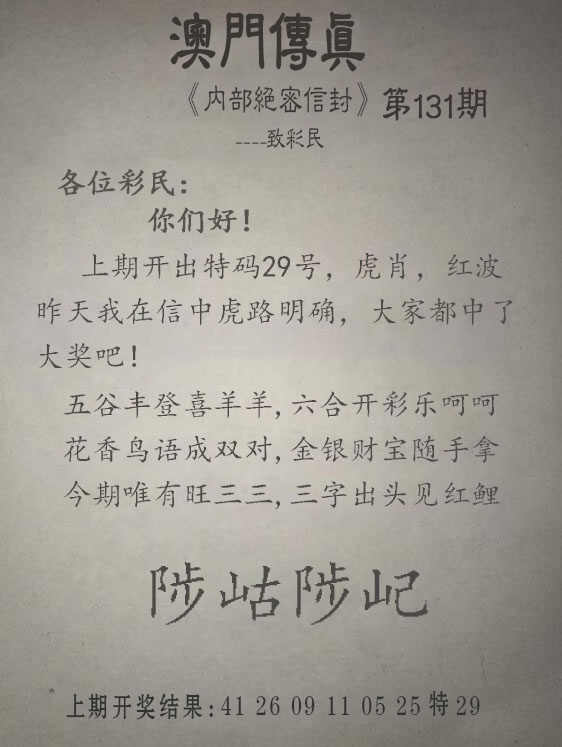 澳門傳眞
《内部絕密信封》第131期
----致彩民
各位彩民：
你们好！
上期开出特码29号，虎肖，红波
昨天我在信中虎路明确，大家都中了
大奖吧！
五谷丰登喜羊羊,六合开彩乐呵呵
花香鸟语成双对,金银财宝随手拿
今期唯有旺三三,三字出头见红鲤
陟岵陟屺
上期开奖结果:41 26 09 11 05 25 特 29